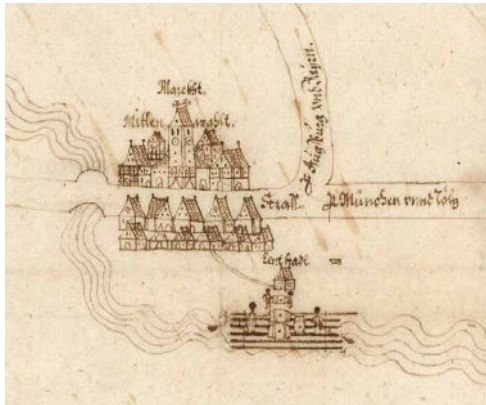 Marckht.
Mitten wahlt.
Strass.
P. Augspurg vnd Bayrn.
P. München vnnd Tölz
Lendt